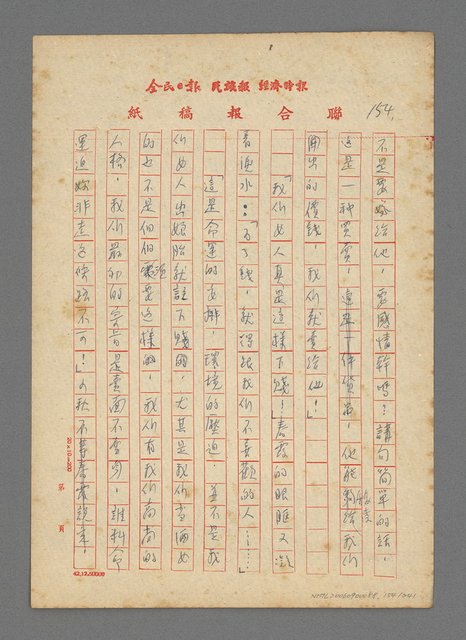 全民日報 民族報 經濟時報
聯合報稿紙
154.
不是要嫁給他,要感情幹嗎?講句簡單的話,
這是一種買賣,這是一件貨品,他能夠給我們
開出的價錢,我們就賣給他!」
「我們女人真是這樣下賤!」春霞的眼眶又
着淚水:「為了錢,就得跟我們不喜歡的人……」
「這是命運的安排,環境的壓迫,並不是我
們女人出娘胎就註下賤的,尤其是我們當酒女
的也不是個個願意這樣的,我們有我們高尚的
人格,我們最初的宗旨是賣面不賣身,誰料命
運迫妳非走這條路不可!」白秋不等春霞說完,
20×10=200
第 頁
42.12.50000
NMTL20060900088_154/241